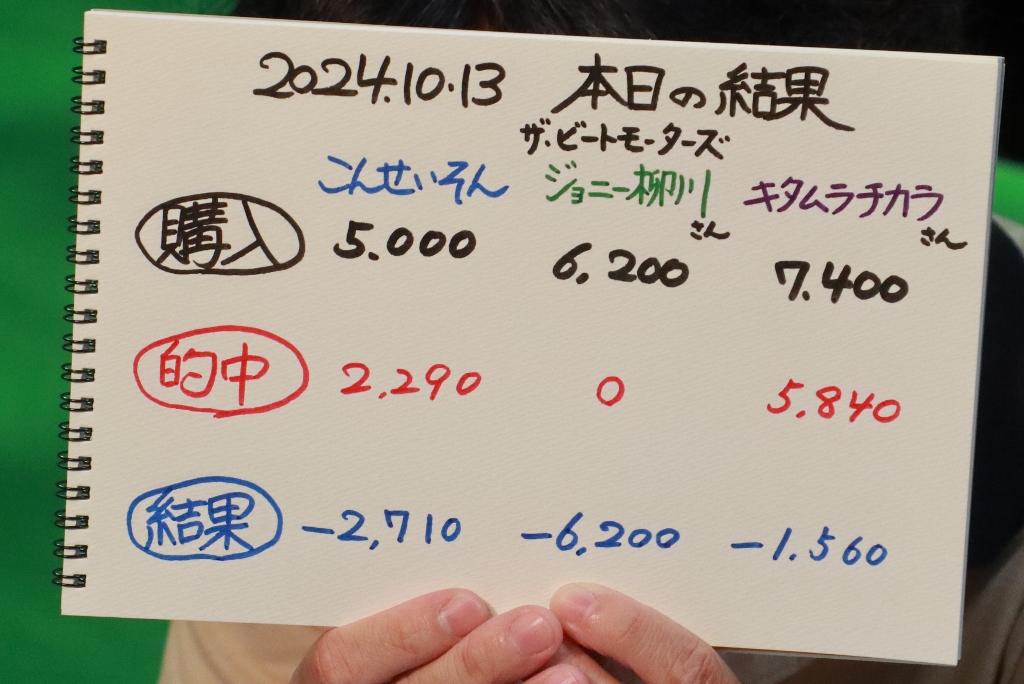 2024.10.13 本日の結果
ザ・ビートモーターズ
こんせいそん ジョニー柳川さん キタムラチカラさん
購入 5.000 6.200 7.400
的中 2,290 0 5,840
結果 -2,710 -6,200 -1.560